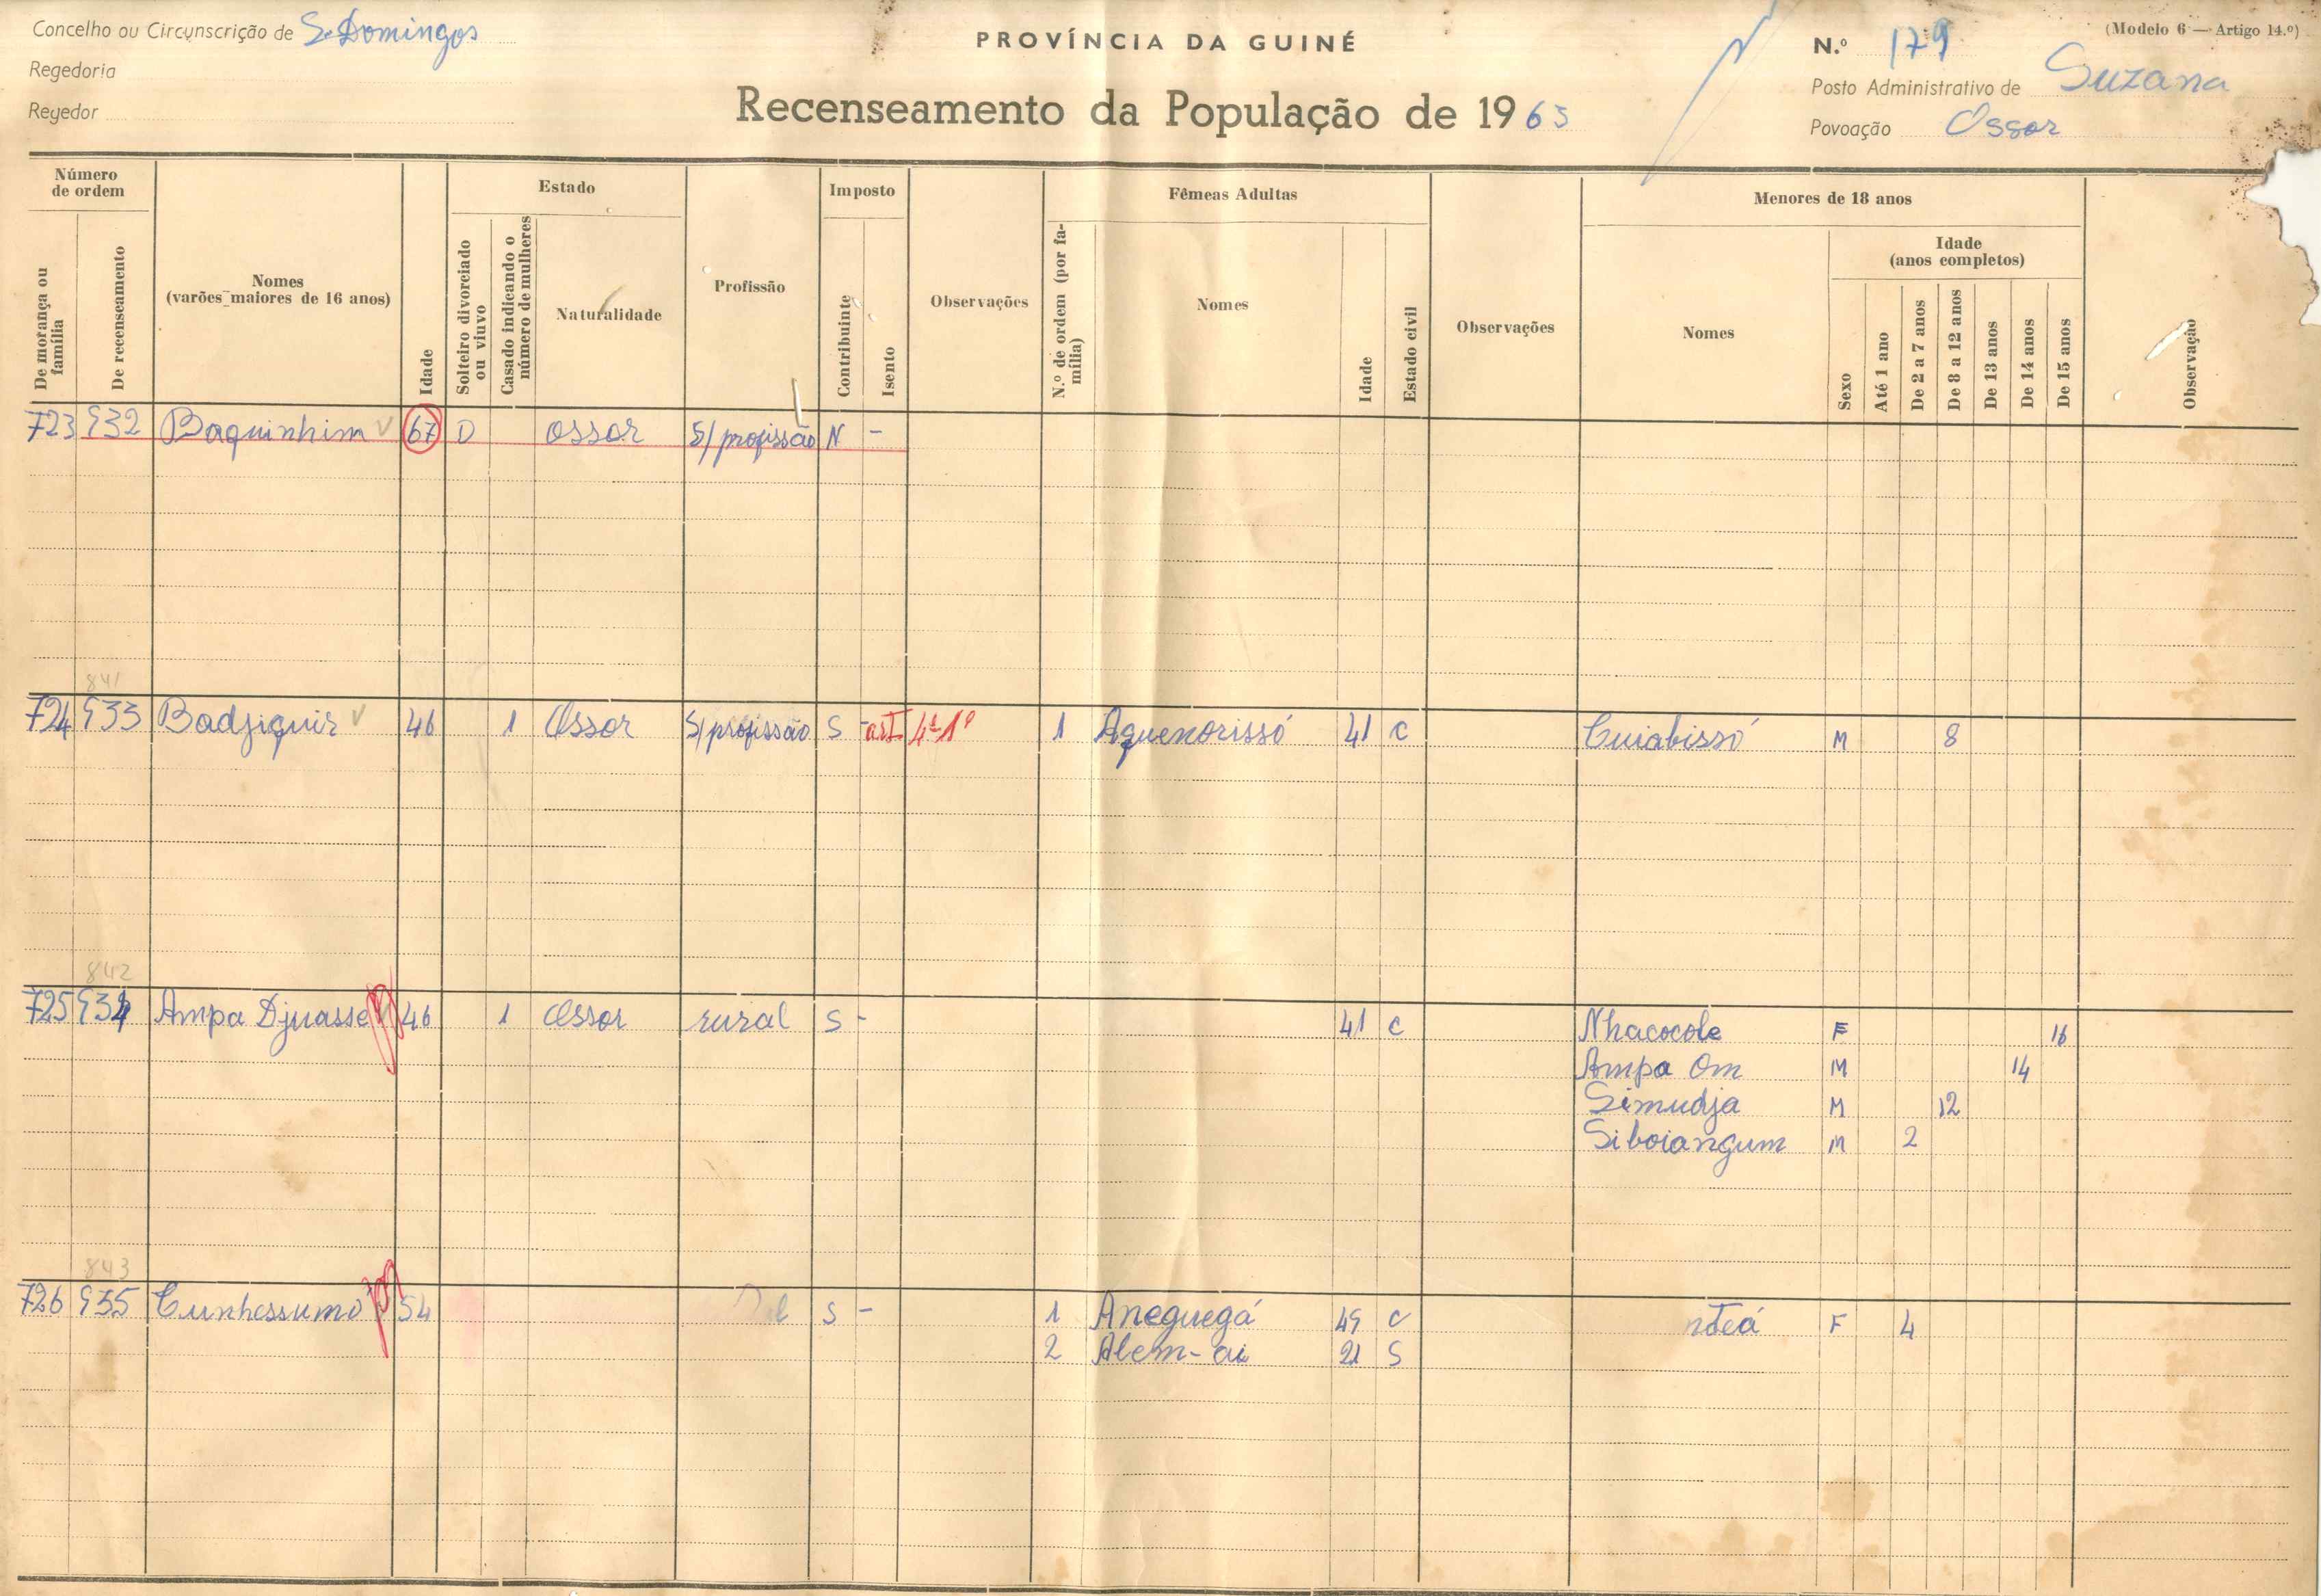 Concelho ou Circunscrição de S. Domingos
Regedoria
Regedor
PROVÍNCIA DA GUINÉ
Recenseamento da População de 1963
(Modelo 6 — Artigo 14.º)
N.º 179
Posto Administrativo de Suzana
Povoação Ossor
Número de ordem
De morança ou família
De recenseamento
Nomes
(varões maiores de 16 anos)
Idade
Estado
Solteiro divorciado ou viuvo
Casado indicando o número de mulheres
Naturalidade
Profissão
Imposto
Contribuinte
Isento
Observações
Fêmeas Adultas
N.º de ordem (por família)
Nomes
Idade
Estado civil
Observações
Menores de 18 anos
Nomes
Sexo
Idade
(anos completos)
Até 1 ano
De 2 a 7 anos
De 8 a 12 anos
De 13 anos
De 14 anos
De 15 anos
Observação
723 932 Baquinhim 67 D Ossor S/ profissão N -
841
724 933 Badjiquir 46 1 Ossor S/ profissão S art 4º 1º 1 Aquenorissó 41 C Cuiabissó M 8
842
725 934 Ampa Djuasse 46 1 Ossor rural S - 41 C Nhacocole F 16
Ampa Om M 14
Simudja M 12
Siboiangum M 2
843
726 935 Cunhessumo 54 S - 1 Aneguegá 49 C F 4
2 Alem-ai 21 S